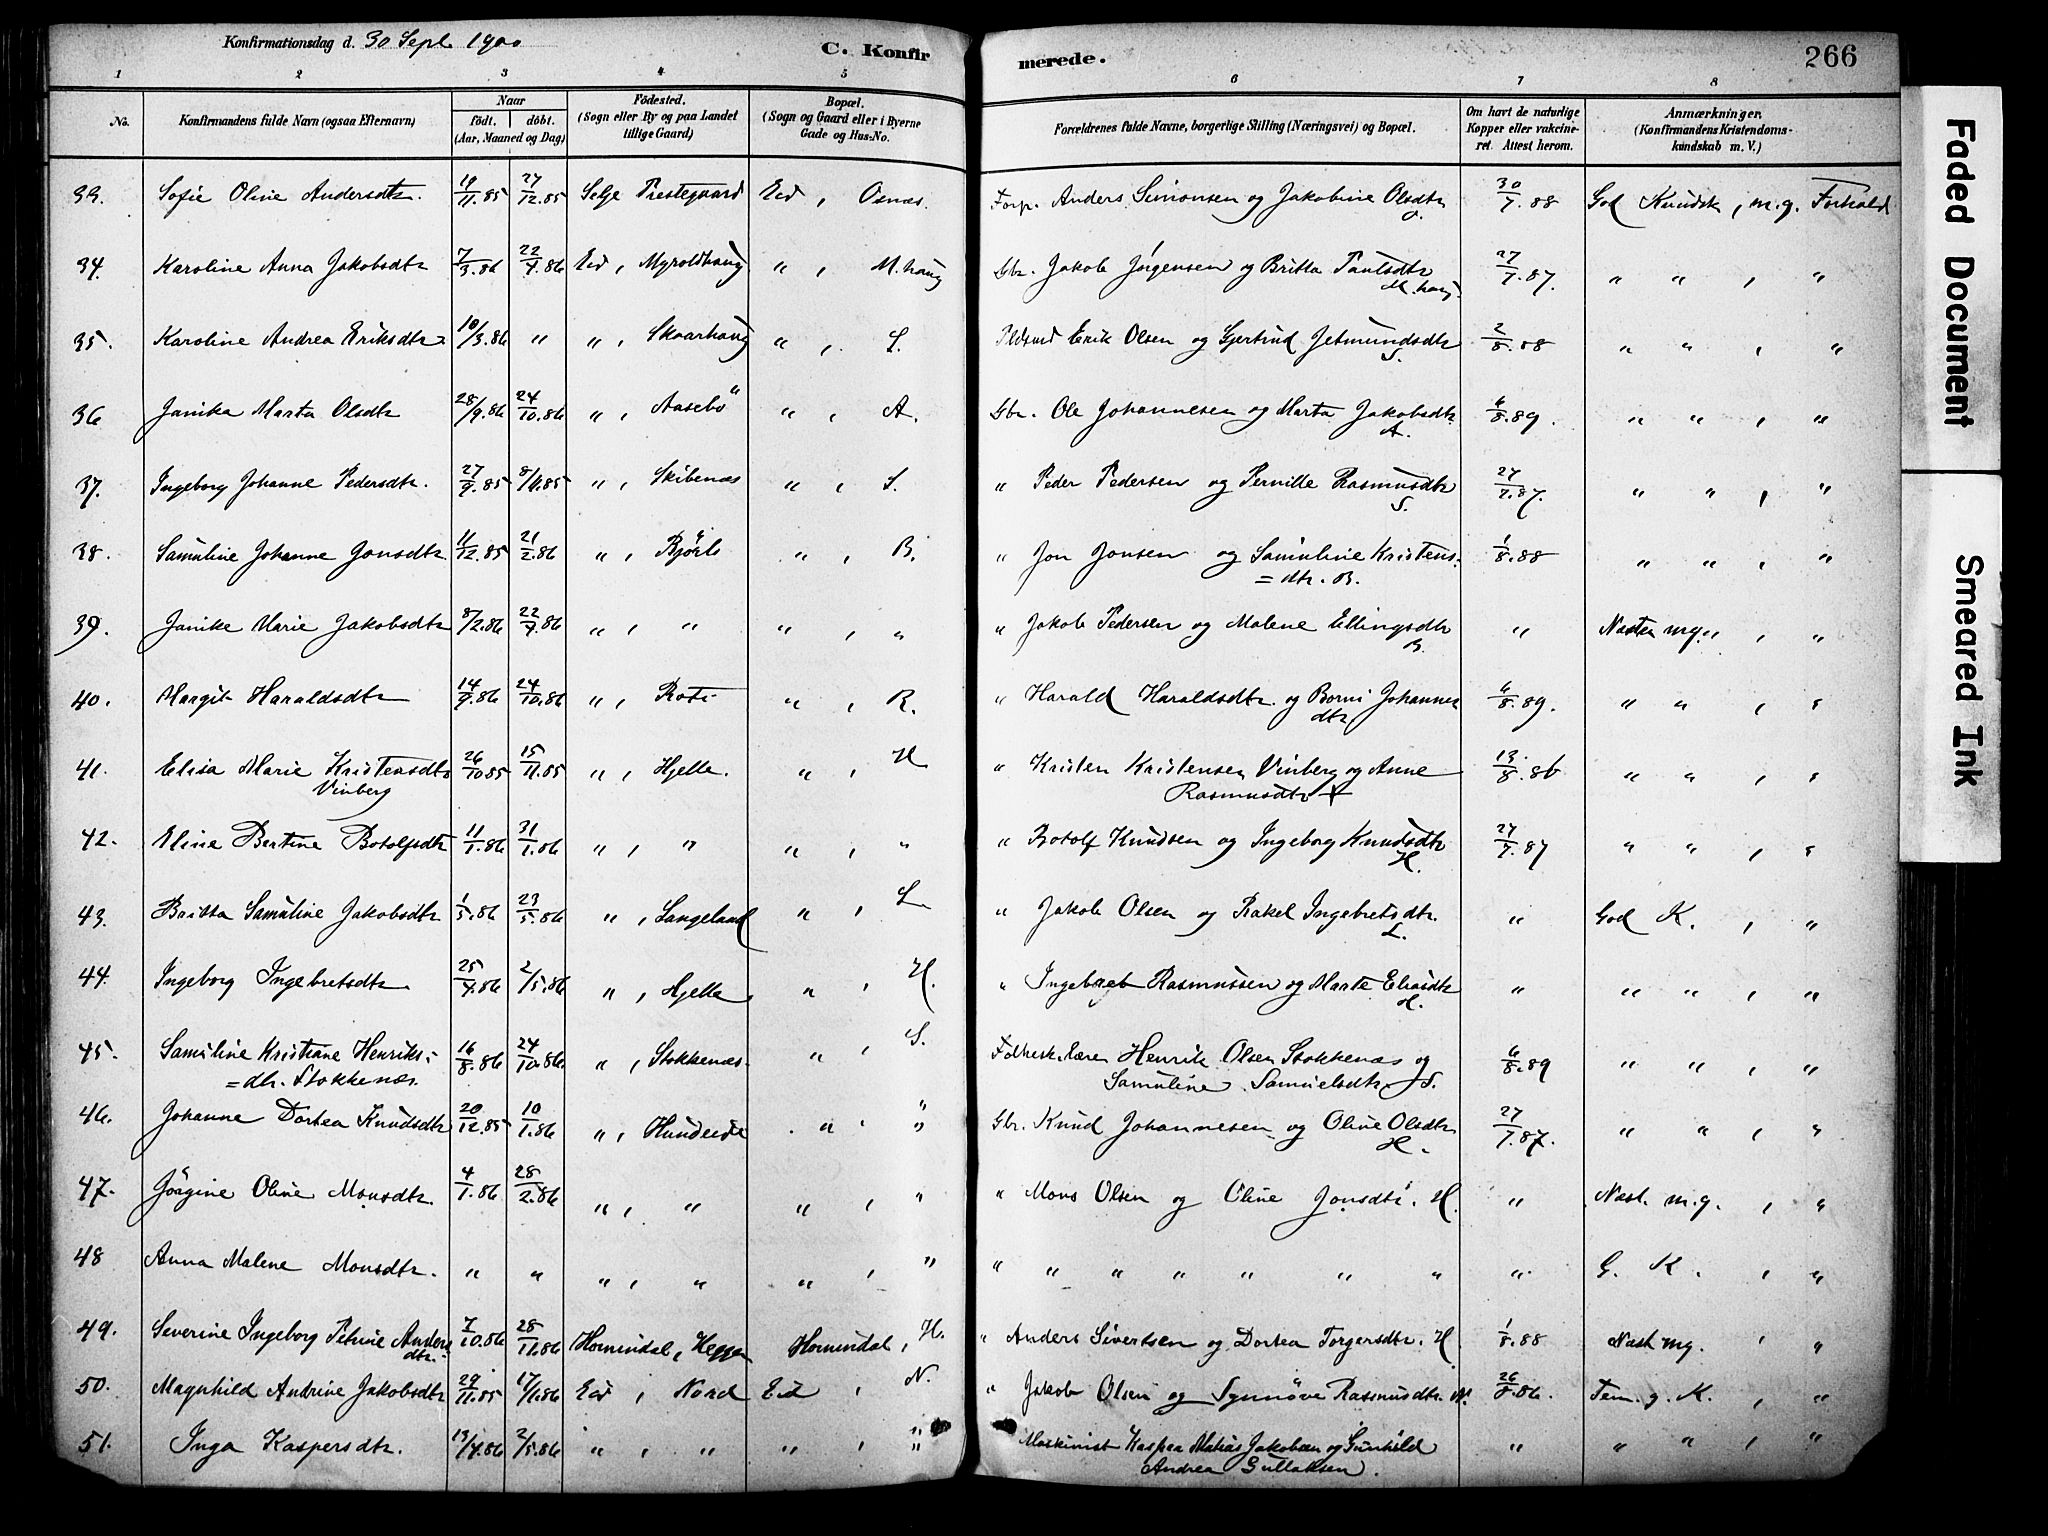 Konfirmationsdag d. 30 Sept. 1900
C. Konfirmerede.
266
1 2 3 4 5 6 7 8
No. Konfirmandens fulde Navn (ogsaa Efternavn) Naar födt. döbt. (Aar, Maaned og Dag) Födested. (Sogn eller By og paa Landet tillige Gaard) Bopæl. (Sogn og Gaard eller i Byerne Gade og Hus-No. Forældrenes fulde Navne, borgerlige Stilling (Næringsvei) og Bopæl. Om havt de naturlige Kopper eller vakcineret. Attest herom. Anmærkninger. (Konfirmandens Kristendomskundskab m. V.)
33. Sofie Oline Andersdtr. 19/11.85 27/12.85 Selje Prestegaard Eid, Osnæs. Forp. Anders Simonsen og Jakobine Olsdtr O. 30/7.88 God Kundsk, m.g. Forhold
34. Karoline Anna Jakobsdtr 7/3.86 22/4.86 Eid, Myroldhaug " , M.haug Gbr. Jakob Jörgensen og Britta Paulsdtr M.haug. 27/7.87. " " , "
35. Karoline Andrea Eriksdtr 10/3.86 " " , Skaarhaug " , S. Pldsmd Erik Olsen og Gjertrud Jetmundsdtr S. 2/8.88 " " , "
36 Janika Marta Olsdtr 28/9.86 24/10.86 " , Aasebö " , A. Gbr. Ole Johannesen og Marta Jakobsdtr. A. 6/8.89. " " , "
37. Ingeborg Johanne Pedersdtr. 27/9.85 8/11.85 " , Skibenæs " , S. " Peder Pedersen og Pernille Rasmusdtr S. 27/7.87. " " , "
38. Samuline Johanne Jonsdtr 11/12.85 21/2.86 " , Bjørlo " , B. " Jon Jonsen og Samuline Kristens=dtr. B. 1/8.88 " " , "
39. Janike Marie Jakobsdtr 8/2.86 22/4.86 " , " " , " " Jakob Pedersen og Malene Ellingsdtr B. " Næsten mg. " , "
40. Margit Haraldsdtr 14/9.86 24/10.86 " , Roti " , R. " Harald Haraldsdtr. og Borni Johannesdtr 6/8.89. " " , "
41. Elisa Marie Kristensdtr Vinberg 26/10.85 15/11.85 " , Hjelle. " , H " Kristen Kristensen Vinberg og Anne Rasmusdtr + 13/8.86 " " , "
42. Eline Bertine Botolfsdtr 11/1.86 31/1.86 " , " " , " " Botolf Knudsen og Ingeborg Knudsdtr H. 27/7.87 " " , "
43. Britta Samuline Jakobsdtr 1/5.86 23/5.86 " , Langeland " , L. " Jakob Olsen og Rakel Ingebretsdtr. L. " God K. , "
44. Ingeborg Ingebretsdtr 25/4.86 2/5.86 " , Hjelle " , H. " Ingebret Rasmussen og Marte Eliasdtr H. " " " , "
45. Samuline Kristiane Henriks=dtr. Stokkenæs. 16/8.86 24/10.86. " , Stokkenæs. " , S. Folkesk.lærer Henrik Olsen Stokkenæs og Samuline Samuelsdtr S. 6/8.89 " " , "
46. Johanne Dortea Knudsdtr 20/12.85 10/1.86 " , Hundeide " , " Gbr. Knud Johannesen og Oline Olsdtr H. 27/7.87. " " , "
47. Jörgine Oline Monsdtr. 4/1.86 28/2.86 " , " " , " " Mons Olsen og Oline Jonsdtr. H. " Næst. m.g. , "
48 Anna Malene Monsdtr. " " " , " " , " " " " " " " " " G. K. , "
49. Severine Ingeborg Petrine Andersdtr. 7/10.86 28/11.86 Hornindal, Heggen Hornindal, H. " Anders Sivertsen og Dortea Torgersdtr. H. 1/8.88 Næst mg. , "
50. Magnhild Andrine Jakobsdtr 29/11.85 17/1.86 Eid , Nord Eid , N. " Jakob Olsen og Synnøve Rasmusdtr. N. 26/8.86. Tem. g. K. , "
51. Inga Kaspersdtr. 13/4.86 2/5.86 " , " " , " Maskinist Kasper Matias Jakobsen og Gunhild Andrea Gullaksen. " " " , "
Faded Document
Smeared Ink